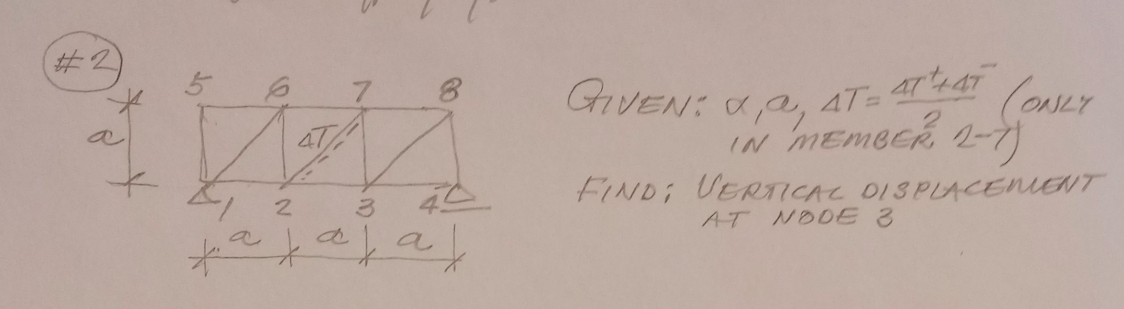 #2
5 6 7 8
a
ΔT
1 2 3 4
a a a
GIVEN: α, a, ΔT = (ΔT⁺+ΔT⁻)/2 (ONLY
IN MEMBER 2-7)
FIND: VERTICAL DISPLACEMENT
AT NODE 3